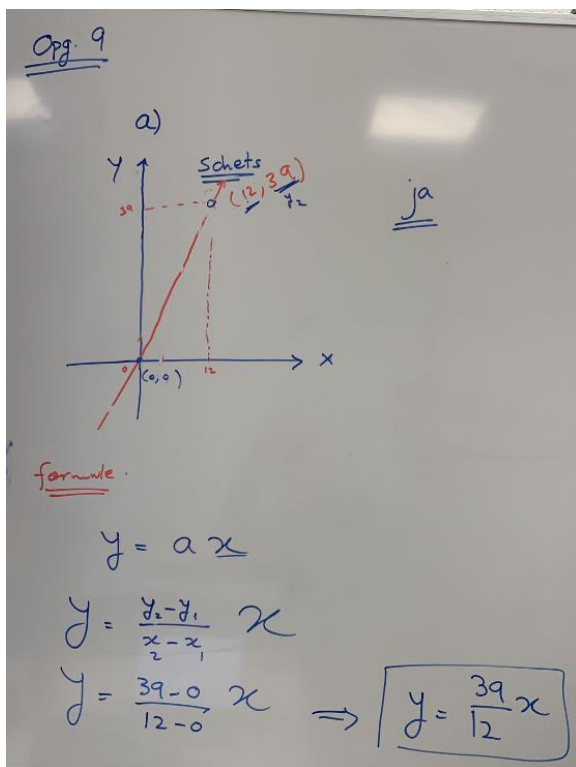 Opg. 9
a)
y
Schets
(12, 39)
y₂
39
ja
0
(0,0)
12
x
formule.
y = a x
y = y₂-y₁ / x₂-x₁ x
y = 39-0 / 12-0 x ⇒ y = 39/12 x